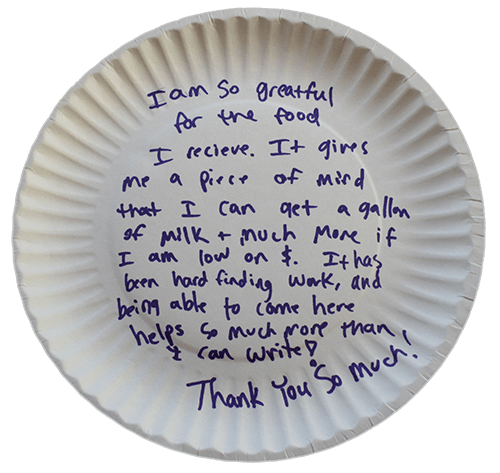 I am so greatful
for the food
I recieve. It gives
me a piece of mind
that I can get a gallon
of milk + much more if
I am low on $. It has
been hard finding work, and
being able to come here
helps so much more than
I can write!
Thank You So Much!